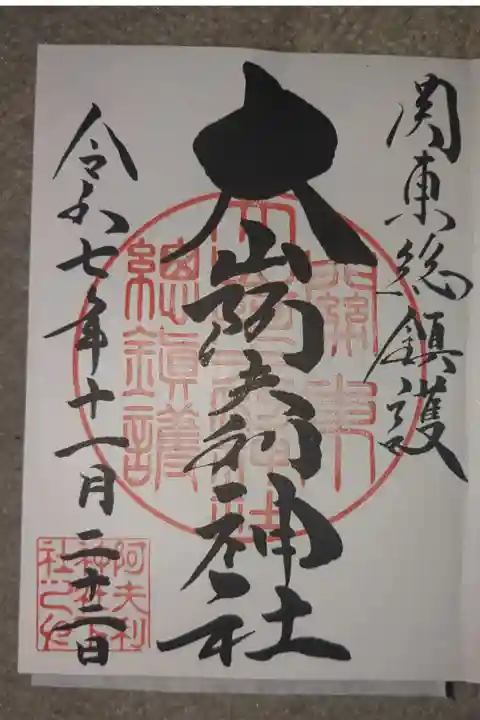 関東総鎮護
大山阿夫利神社
令和七年十一月二十二日
關東
總鎮護
阿夫利